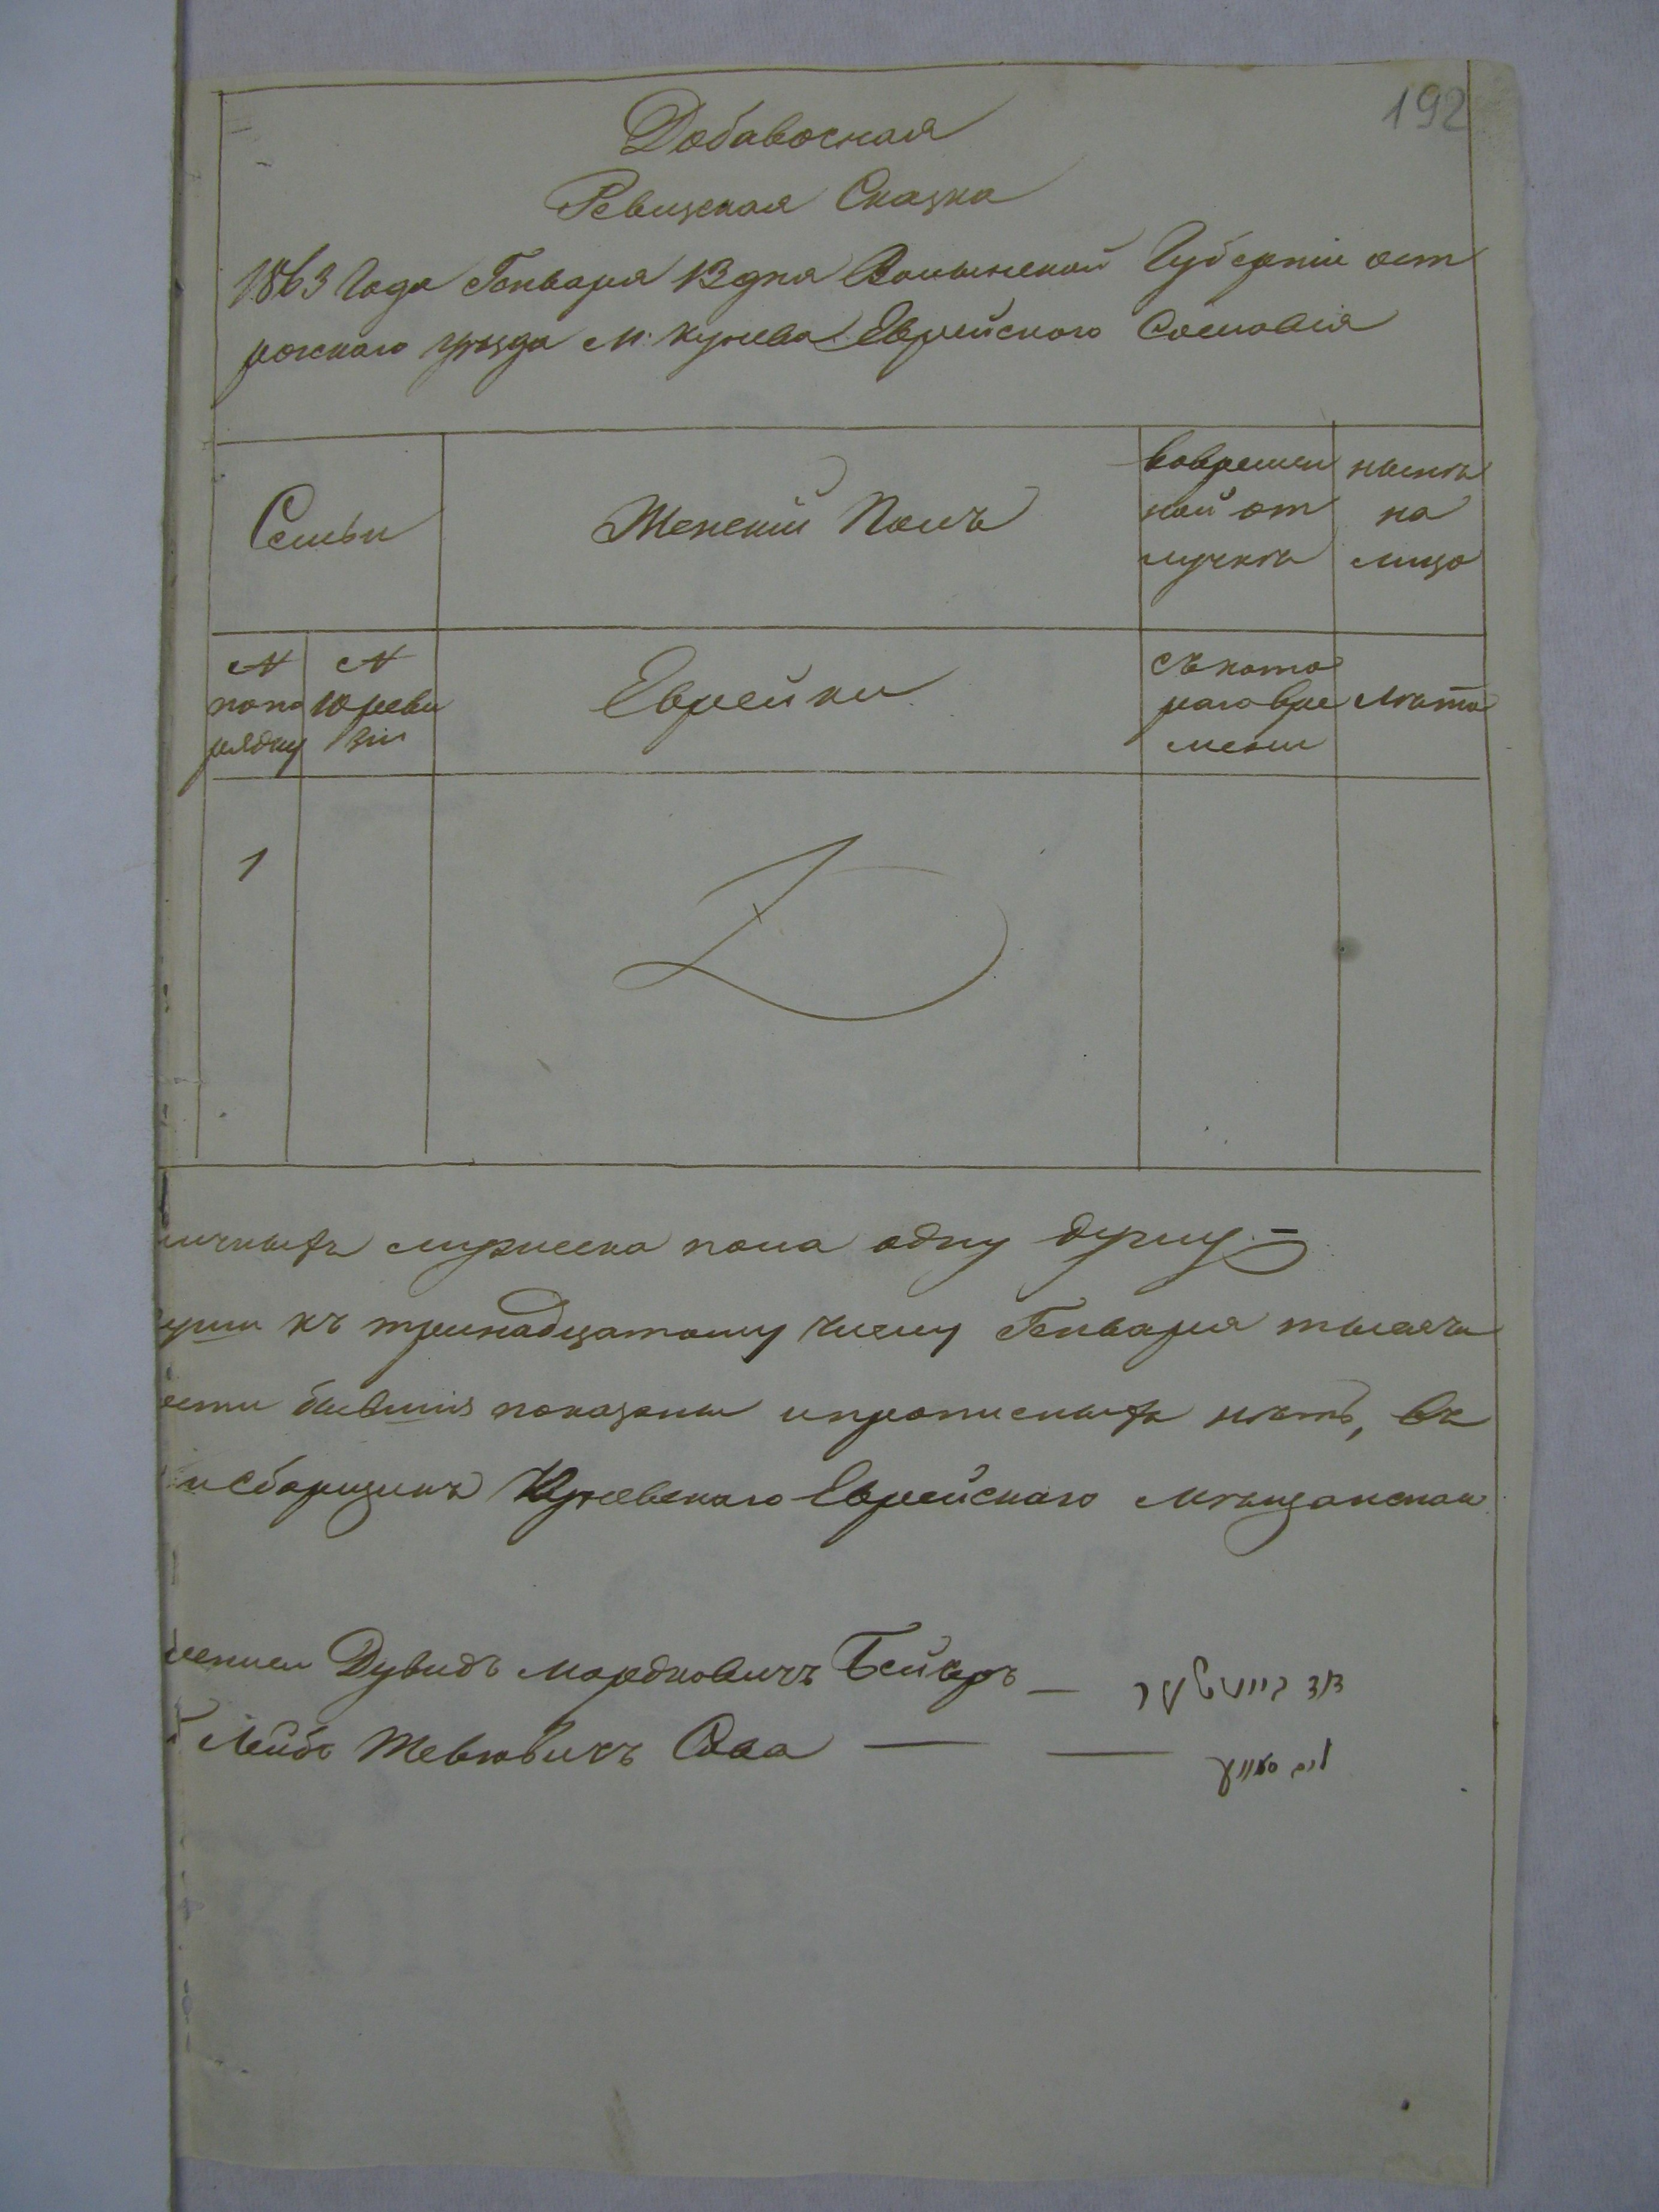 192
Добавосная
Ревизская Сказка
1863 Года Генваря 13 дня Волынской Губернии ост
рожского уезда М. Кунева Еврейского Сословия
Семьи
Женский Полъ
вовремен
ной от
лучкъ
нынѣ
на
лицо
N
попо
рядку
N
10 реви
зіи
Еврейки
съ кото
раго вре
мени
Лѣта
1
личныхъ мужеска пола одну душу =
уши къ тринадцатому числу Генваря тысяча
ости бывшіз показаны ипрописныхъ нѣтъ, въ
исборщикъ Куневскаго Еврейскаго Мѣщанскаго
Дувидъ Мордковичъ Бейдеръ —
Лейбъ Тевювичъ Сова — —